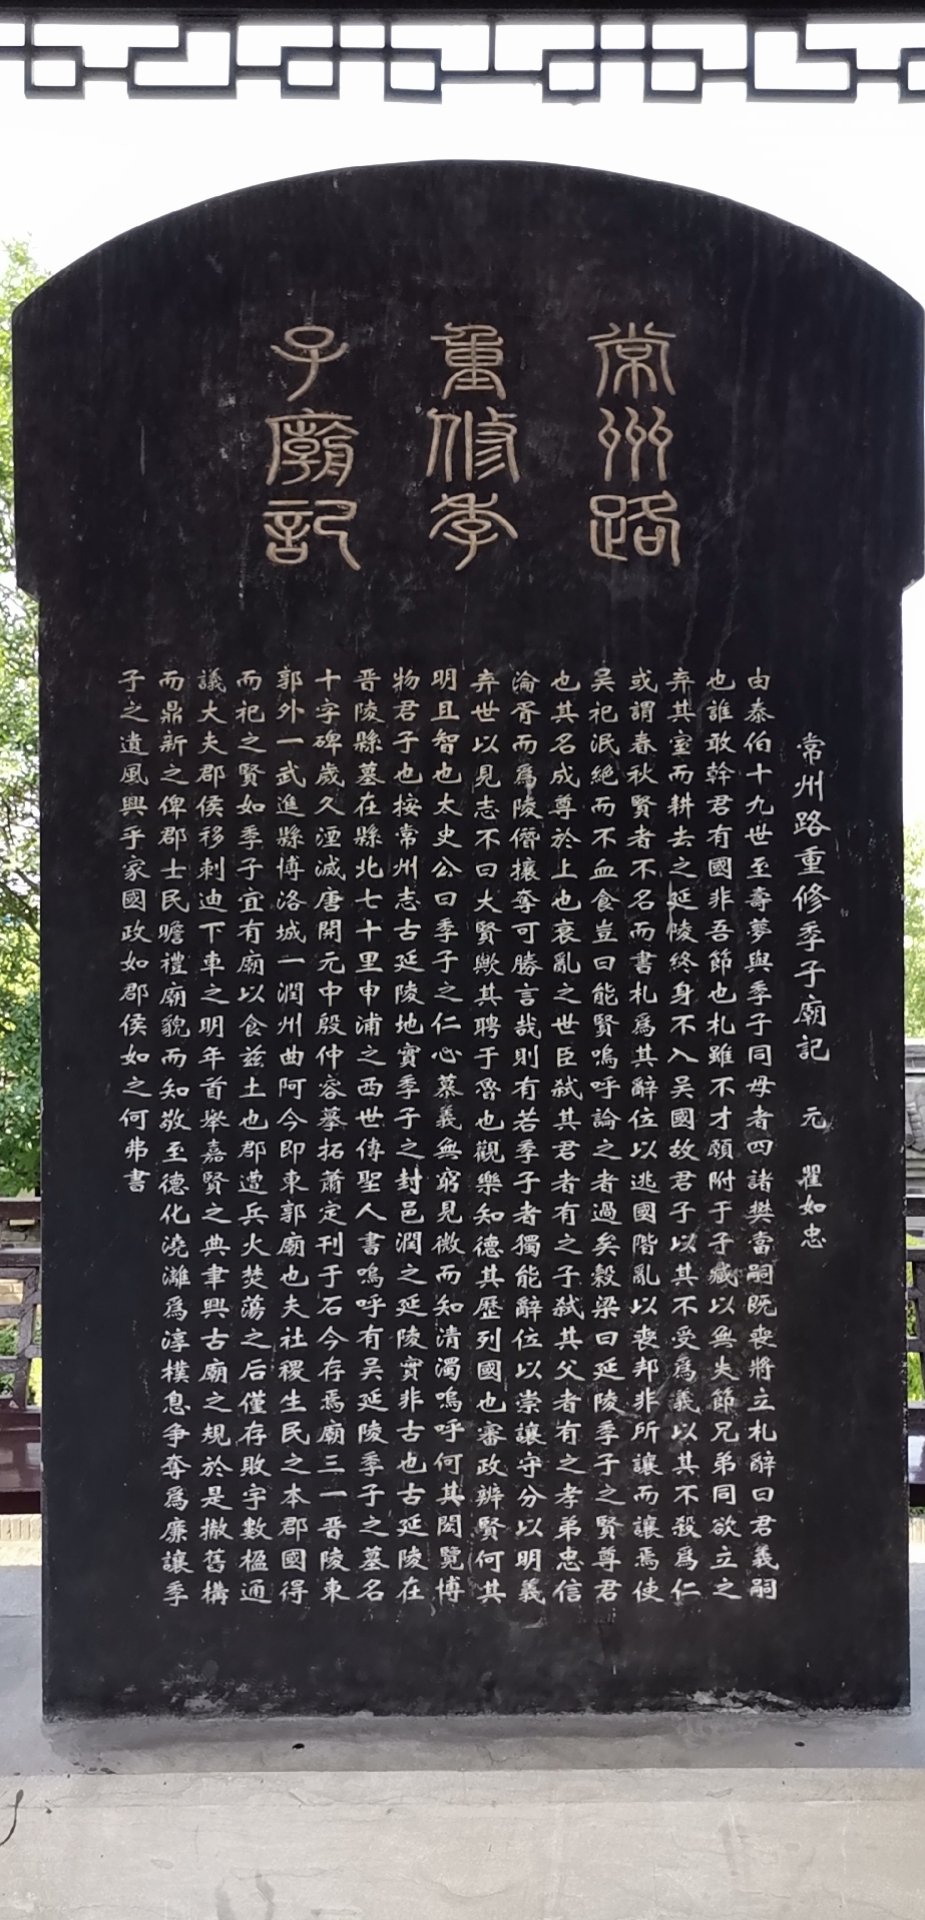 常州路
重修季
子廟記
常州路重修季子廟記 元 瞿如忠
由泰伯十九世至壽夢與季子同母者四諸樊當嗣既喪將立札辭曰君義嗣
也誰敢幹君有國非吾節也札雖不才願附于子臧以無失節兄弟同欲立之
弃其室而耕去之延陵終身不入吳國故君子以其不受爲義以其不殺爲仁
或謂春秋賢者不名而書札爲其辭位以逃國階亂以喪邦非所讓而讓焉使
吳祀泯絕而不血食豈曰能賢嗚呼論之者過矣穀梁曰延陵季子之賢尊君
也其名成尊於上也衰亂之世臣弒其君者有之子弒其父者有之孝弟忠信
淪胥而爲陵僭攘奪可勝言哉則有若季子者獨能辭位以崇讓守分以明義
弃世以見志不曰大賢歟其聘于魯也觀樂知德其歷列國也審政辨賢何其
明且智也太史公曰季子之仁心慕義無窮見微而知清濁嗚呼何其閎覽博
物君子也按常州志古延陵地實季子之封邑潤之延陵實非古也古延陵在
晉陵縣墓在縣北七十里申浦之西世傳聖人書嗚呼有吳延陵季子之墓名
十字碑歲久湮滅唐開元中殷仲容摹拓蕭定刊于石今存焉廟三一晋陵東
郭外一武進縣博洛城一潤州曲阿今即東郭廟也夫社稷生民之本郡國得
而祀之賢如季子宜有廟以食兹土也郡遭兵火焚蕩之后僅存敗宇數楹通
議大夫郡侯移剌迪下車之明年首舉嘉賢之典聿興古廟之規於是撤舊構
而鼎新之俾郡士民瞻禮廟貌而知敬至德化澆漓爲淳樸息争奪爲廉讓季
子之遺風興乎家國政如郡侯如之何弗書